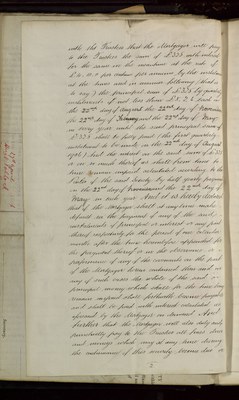 with the Trustees that the Mortgagor will pay
to the Trustees the sum of £335 with interest
for the same in the meantime at the rate of
per centum per annum by the instalments
at the times and in manner following that is
to say the principal sum of £335 by quarterly
instalments of not less than £
the 22nd day of August the 22nd day of November
the 22nd day of February and the 22nd day of May
in every year until the said principal sum of
£335 shall be fully paid the first quarterly
instalment to be made on the 22nd day of August
and the interest on the said sum of £335
or so much thereof as shall from time to
time remain unpaid calculated according to the
rate of the said half yearly payments
on the 22nd day of November and the 22nd day of
May in each year And it is hereby declared
that if the Mortgagor shall at any time make
default in the payment of any of the said
instalments of principal or interest or any part
thereof respectively for the period of one
month after the time hereinbefore appointed for
the payment thereof or in the observance or
performance of any of the covenants on the part
of the Mortgagor herein contained then and in
any of such cases the whole of the said
principal money which shall for the time being
remain unpaid shall forthwith become payable
and shall be paid with interest calculated as
aforesaid by the Mortgagor on demand And
further that the Mortgagor will also duly and
punctually pay to the Trustees all fines dues
and moneys which may at any time during
the continuance of this security become due or